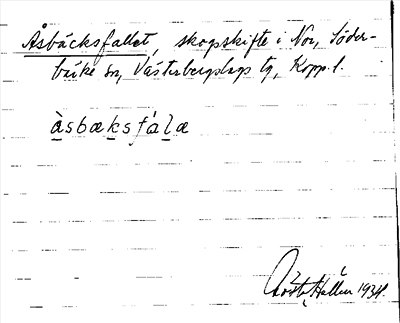 Åsbäcksfallet, skogsskifte i Nor, Söder-
bärke sn, Västerbergslags tg, Kopp. l.
àsbæksfála
Gösta Hallen 1934.